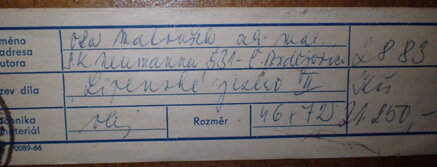 méno
adresa
utora
Ota Matoušek ak. mal.
S. K. Neumanna 531 - Č. Budějovice
2883
zev díla
Lipenské jezero II
Kčs
chnika
materiál
olej
Rozměr
46 x 72
21.250,-
0089-66